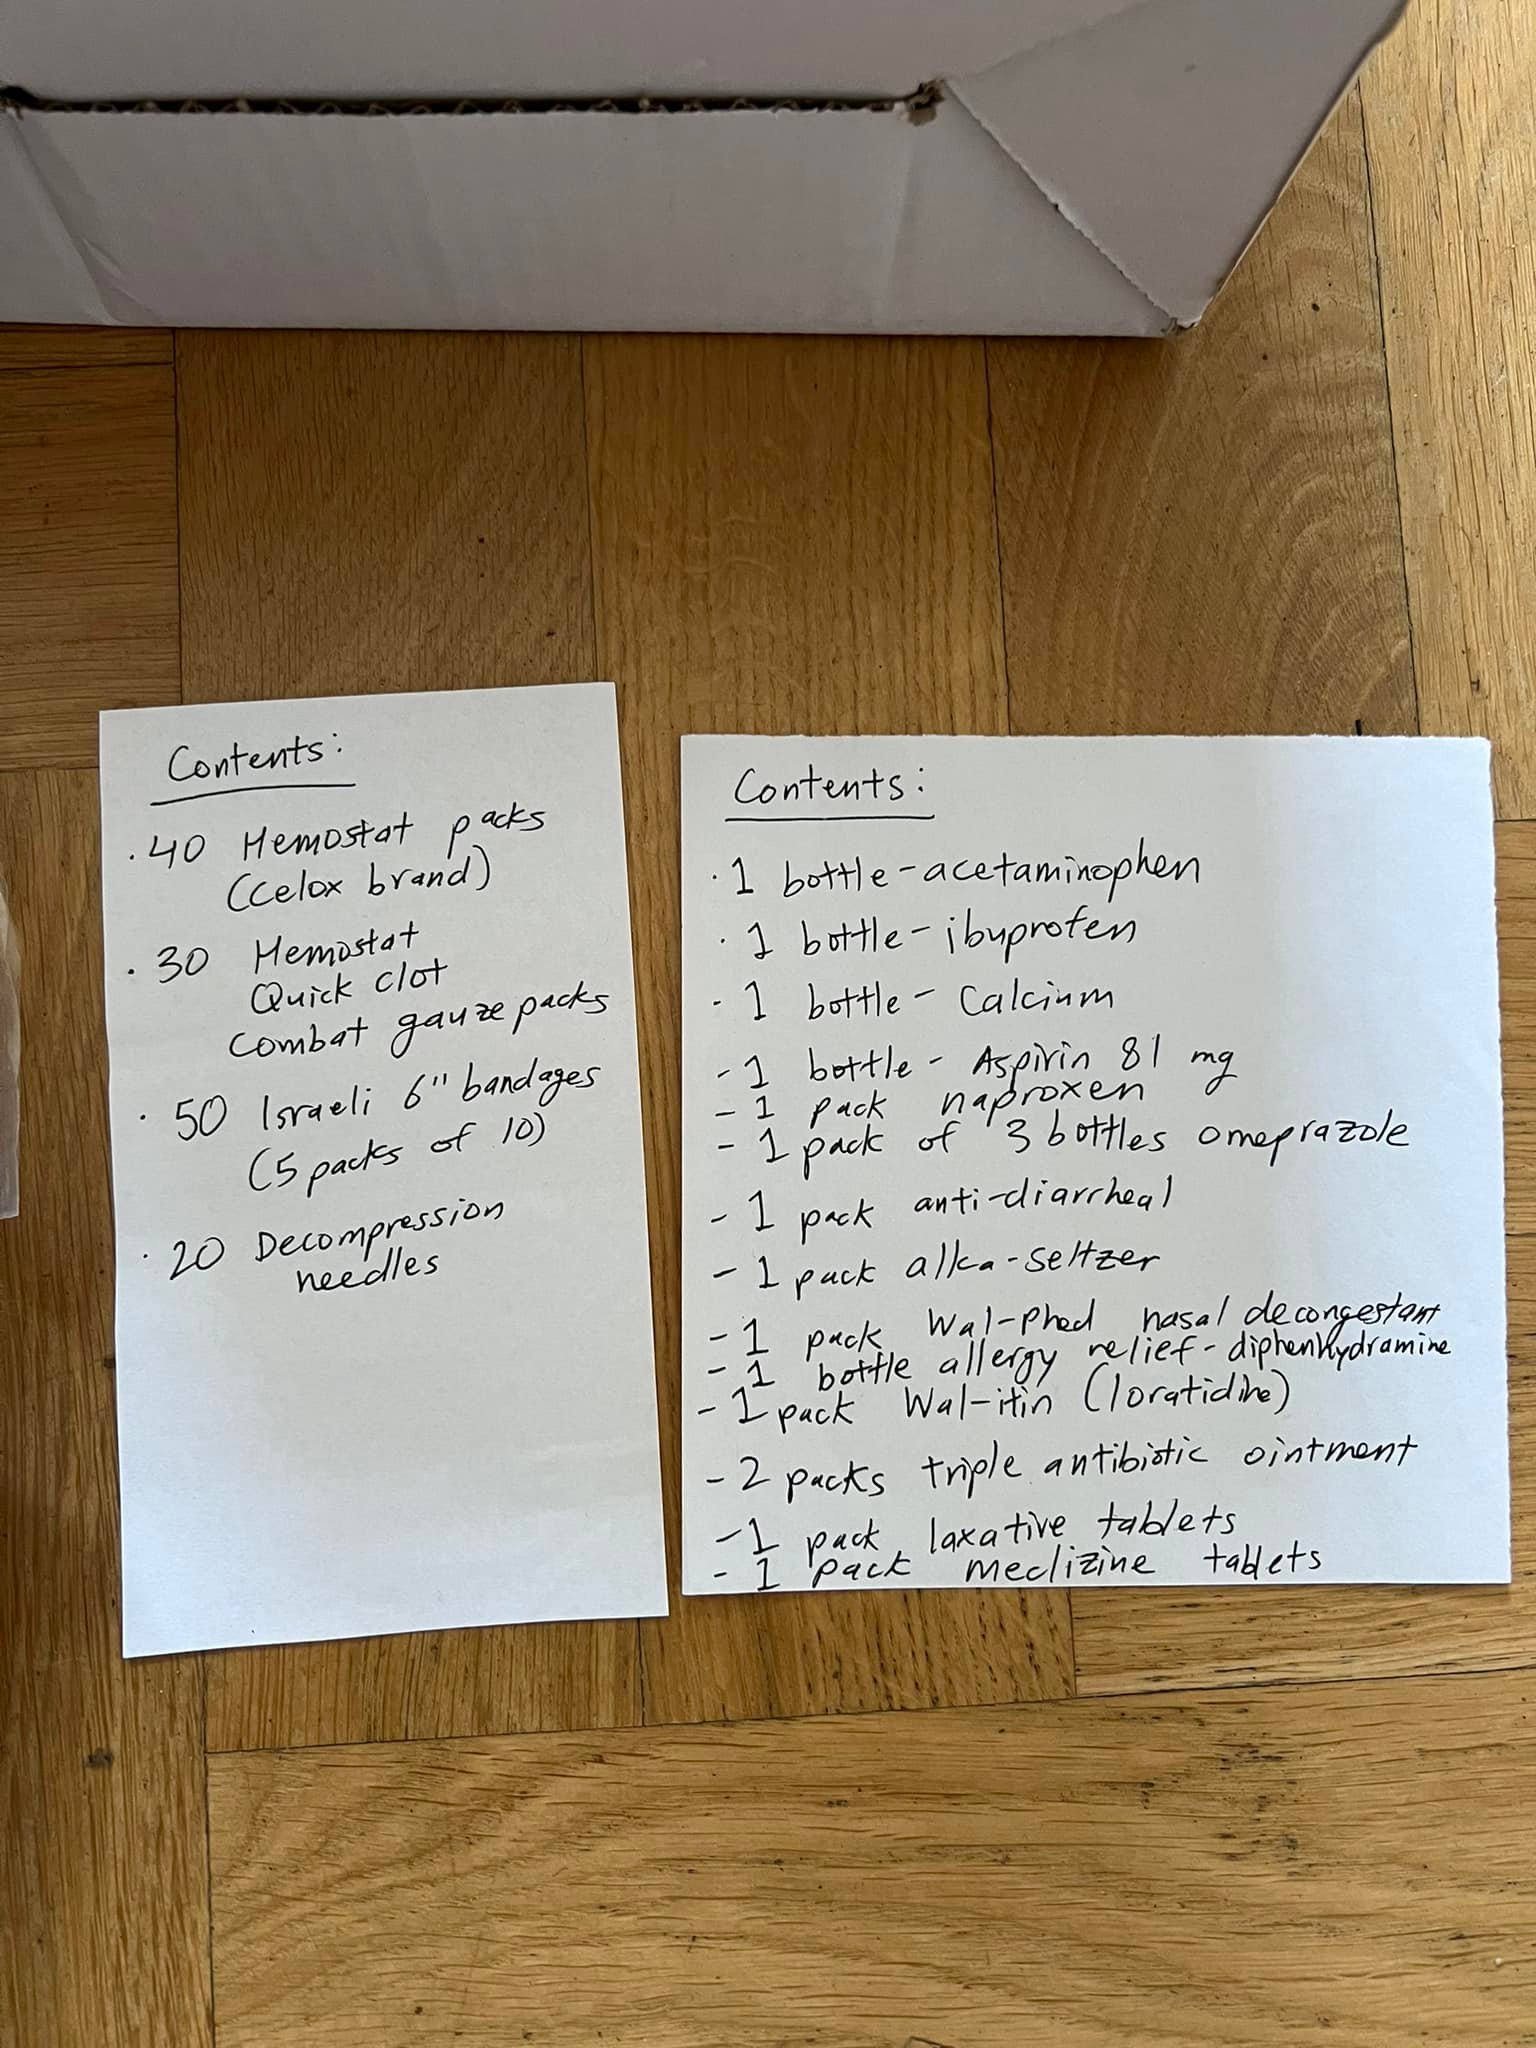 Contents:
· 40 Hemostat packs
(Celox brand)
· 30 Hemostat
Quick Clot
Combat gauze packs
· 50 Israeli 6" bandages
(5 packs of 10)
· 20 Decompression
needles
Contents:
· 1 bottle - acetaminophen
· 1 bottle - ibuprofen
- 1 bottle - Calcium
- 1 bottle - Aspirin 81 mg
- 1 pack naproxen
- 1 pack of 3 bottles omeprazole
- 1 pack anti-diarrheal
- 1 pack alka-seltzer
- 1 pack Wal-Phed nasal decongestant
- 1 bottle allergy relief - diphenhydramine
- 1 pack Wal-itin (loratidine)
- 2 packs triple antibiotic ointment
- 1 pack laxative tablets
- 1 pack meclizine tablets